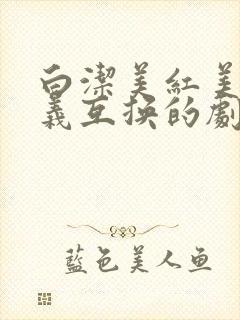 白潔美紅美
義互换的劇
藍色美人鱼